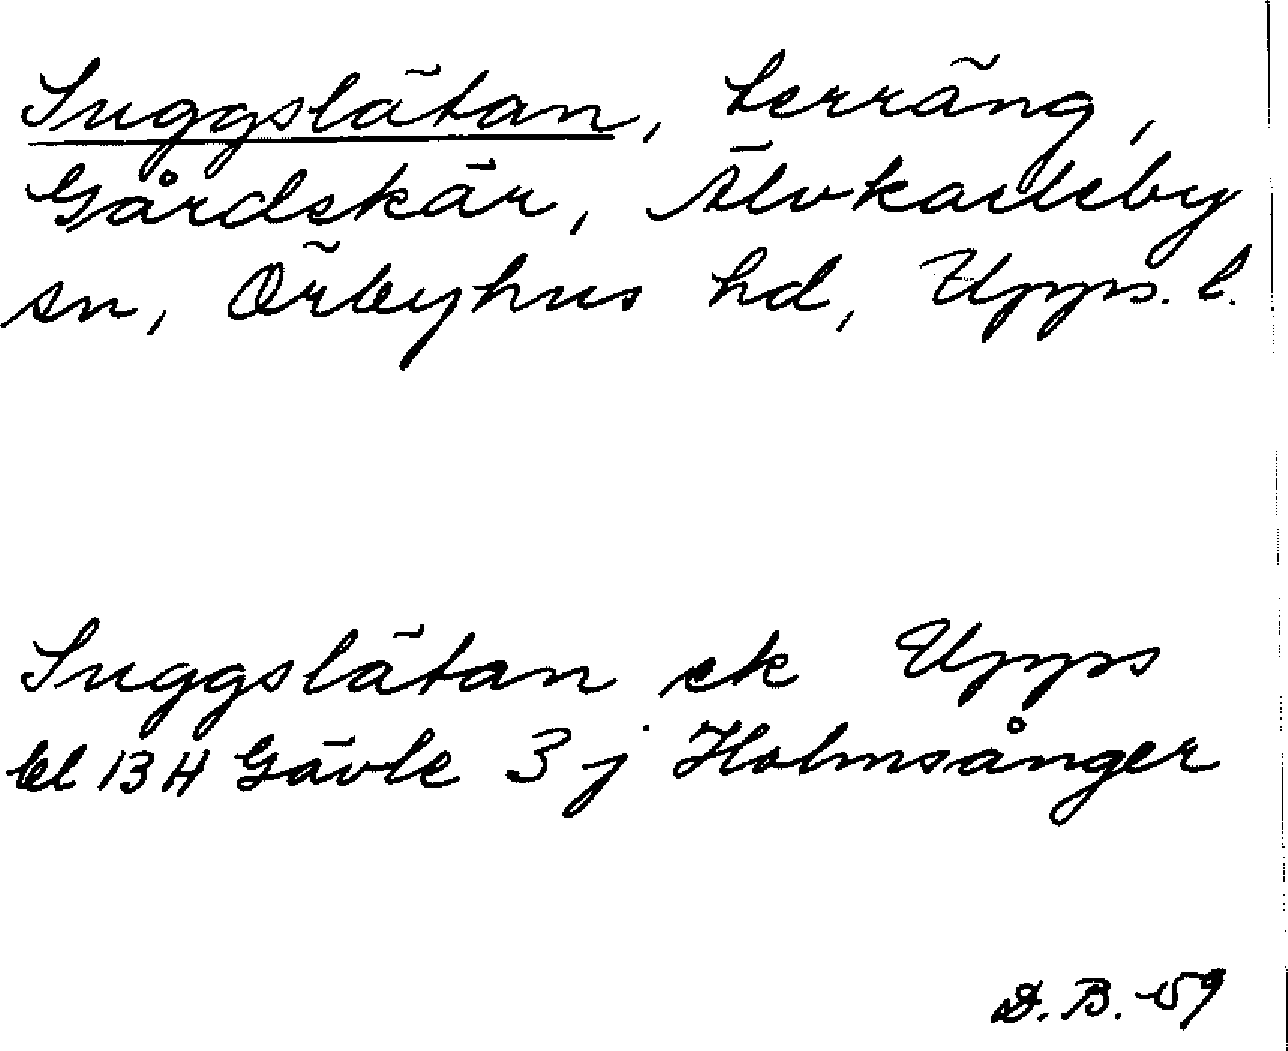 Suggslätan, terräng,
Gårdskär, Älvkarleby
sn, Örbyhus hd, Upps. l.
Suggslätan ek Upps
bl 13 H Gävle 3 j Holmsånger
D. B. -59